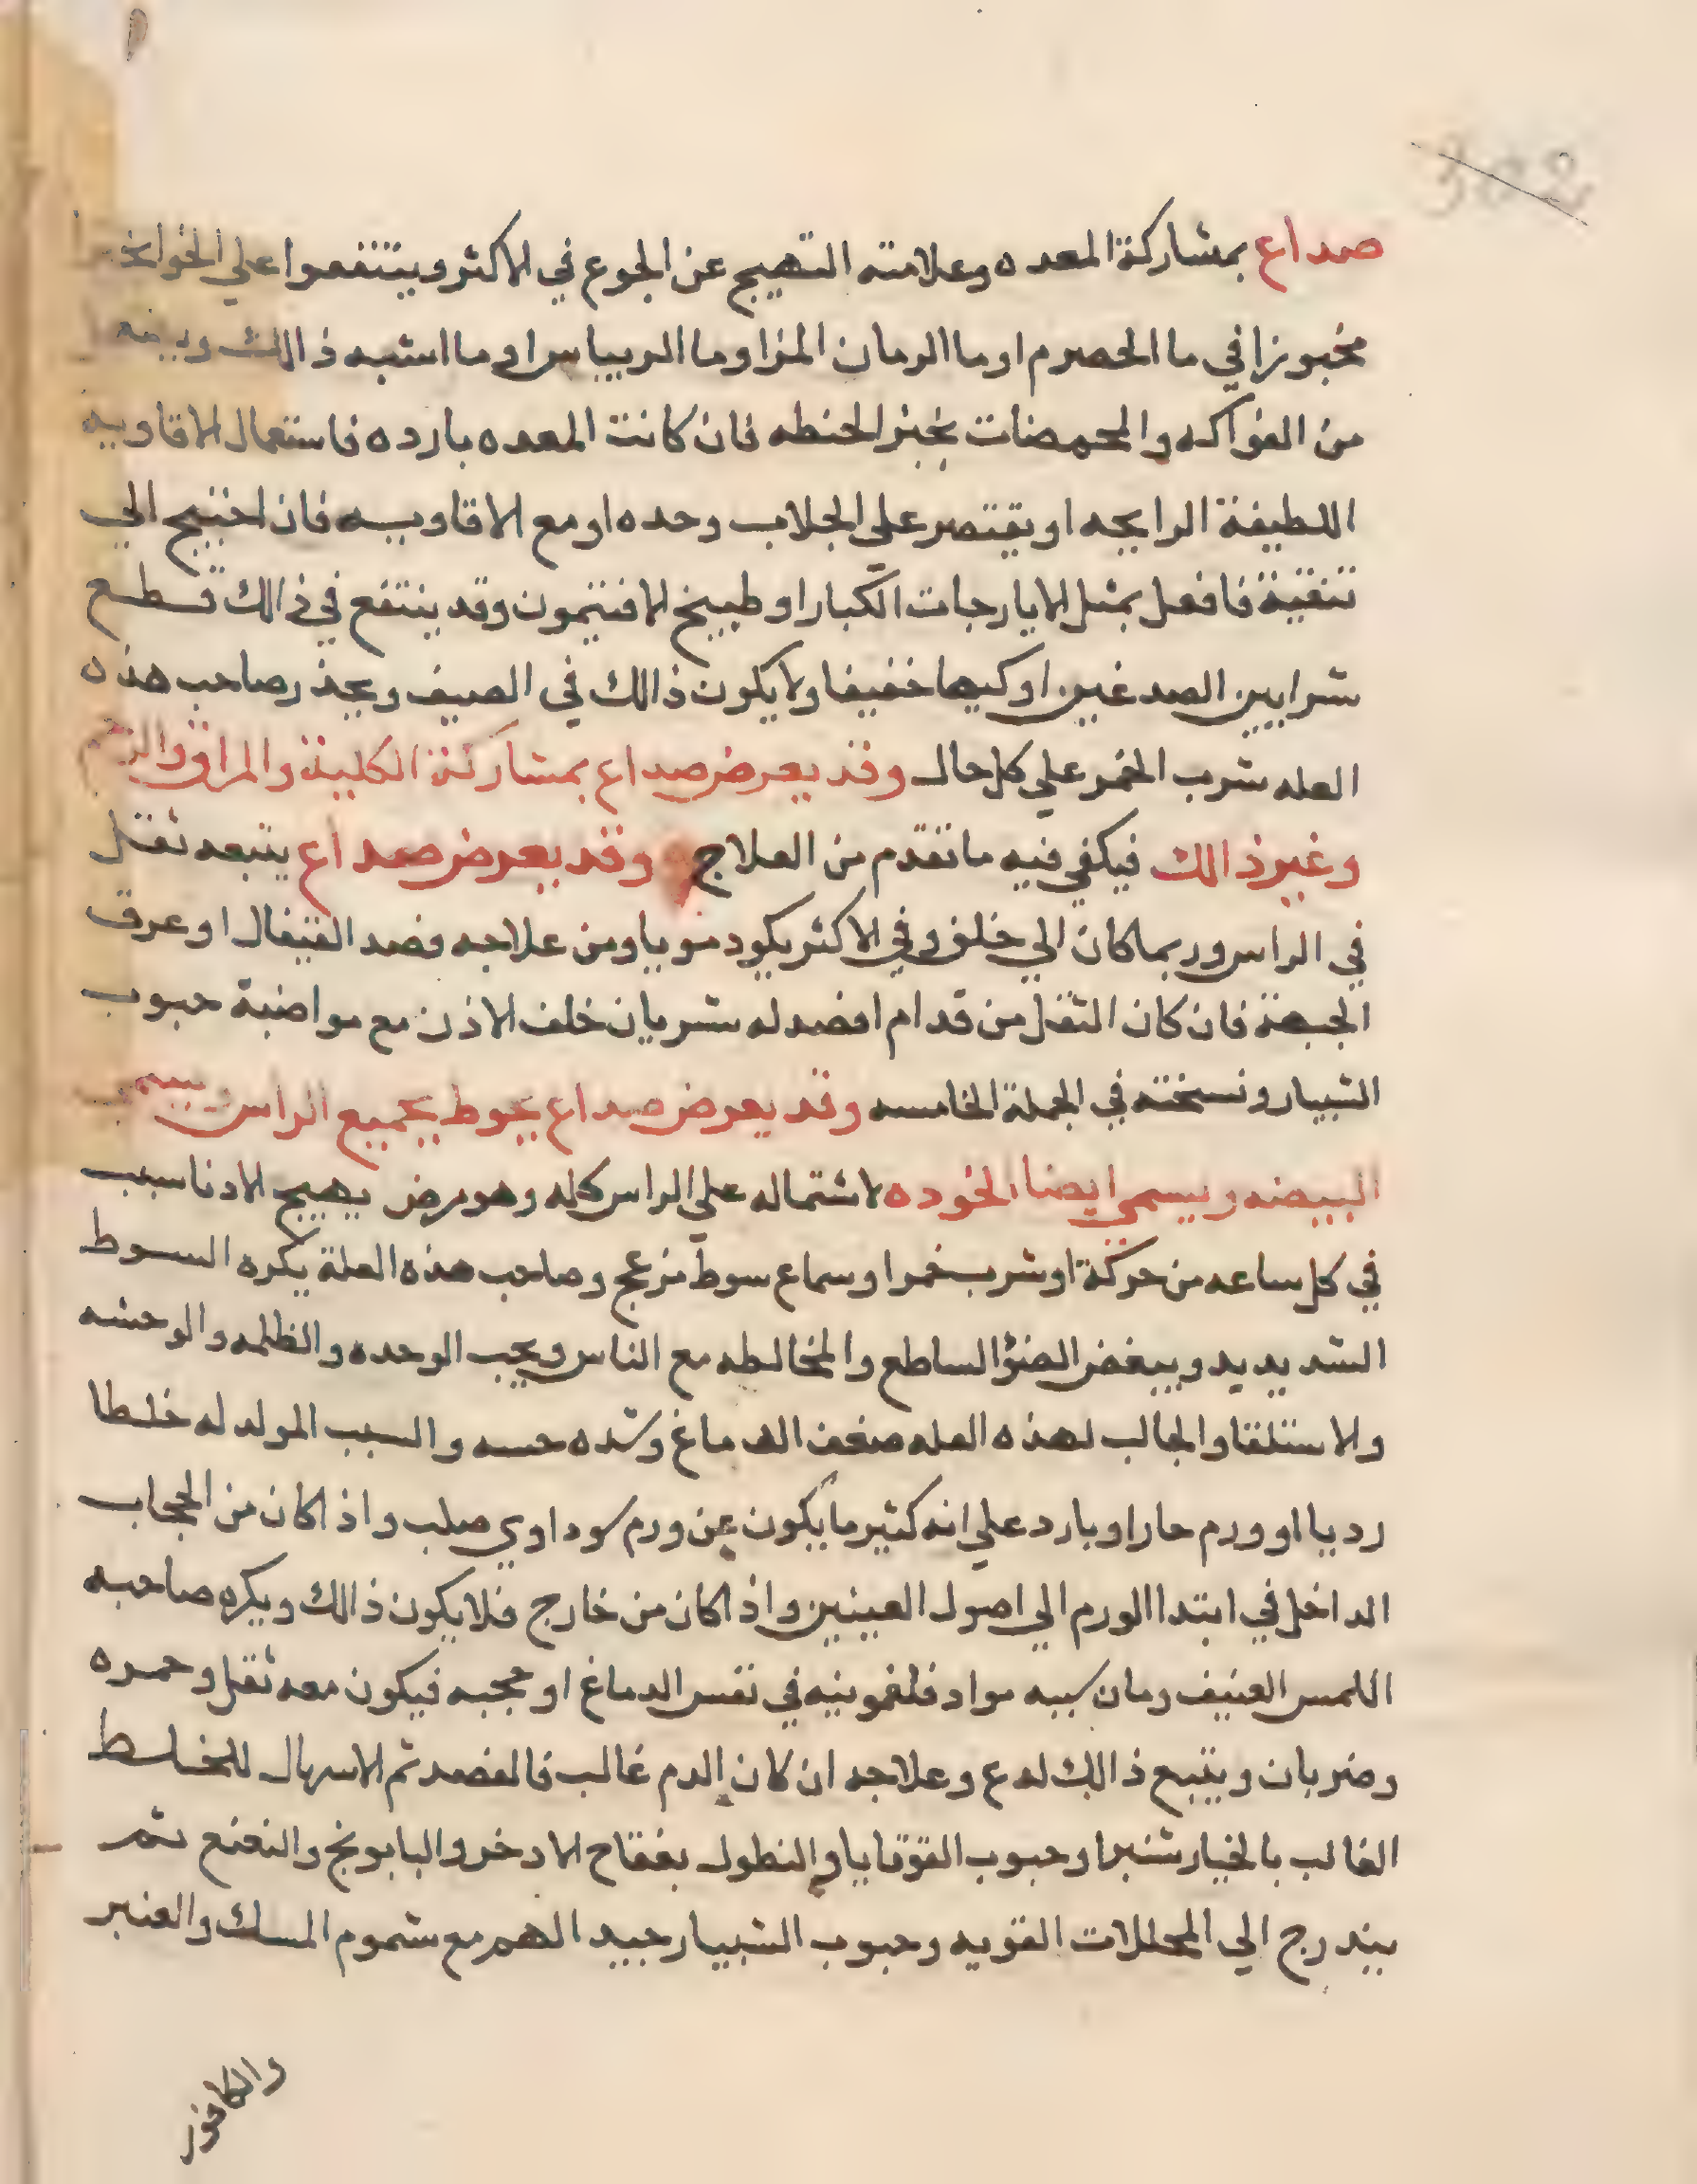 302
صداع بمشاركة المعده وعلامته التهيج عن الجوع في الاكثر وينتفعوا علي الخوا
مخبوزا في ما الحصرم اوما الرمان المزاوما الريباس اوما اشبه ذالك
من الفواكه والمحمضات بخبز الحنطه فان كانت المعده بارده فاستعمال الافاويه
اللطيفة الرايحه او يقتصر علي الجلاب وحده او مع الافاويه فان احتيج الي
تنقية فافعل بمثل الايارجات الكبار او طبيخ الافتيمون وقد ينتفع في ذالك قطع
شرايين الصدغين او كيها خفيفا ولا يكون ذالك في الصيف ويحذر صاحب هذه
العله شرب الخمر علي كل حال وقد يعرض صداع بمشاركة الكلية والمراق والرحم
وغير ذالك فيكفي فيه ما تقدم من العلاج وقد يعرض صداع يتبعه ثقل
في الراس وربما كان الي خلف وفي الاكثر يكود مويا ومن علاجه فصد القيفال او عرق
الجبهة فان كان الثقل من قدام افصد له شريان خلف الاذن مع مواضبة حبوب
الشبيار ونسخته في الجملة الخامسه وقد يعرض صداع يحوط بجميع الراس ويسمي
البيضه ويسمي ايضا الخوده لاشتماله علي الراس كله وهو مرض يهيج لادنا سبب
في كل ساعه من حركة او شرب خمر او سماع سوط مزعج وصاحب هذه العلة يكره السوط
الشديديد ويبغض الضؤ الساطع والمخالطه مع الناس ويحب الوحده والظلمه والوحشه
والاستلقا والجالب لهذه العله ضعف الدماغ وشده حسه والسبب المولد له خلطا
رديا او ورم حار او بارد علي انه كثير ما يكون عن ورم سوداوي صلب واذا كان من الحجاب
الداخل في ابتدا الورم الي اصول العينين واذا كان من خارج فلا يكون ذالك ويكره صاحبه
اللمس العنيف ومان سببه مواد فلغمونيه في نفس الدماغ او حجبه فيكون معه ثقل وحمره
وضربان ويتبع ذالك لدع وعلاجه ان كان الدم غالب فالفصد ثم الاسهال للخلط
الغالب بالخيار شنبر او حبوب القوقايا والنطول بفقاح الادخر والبابونج والنعنع ثم
يندرج الي المحللات القويه وحبوب الشبيار جيد الهم مع شموم المسك والعنبر
والكافور